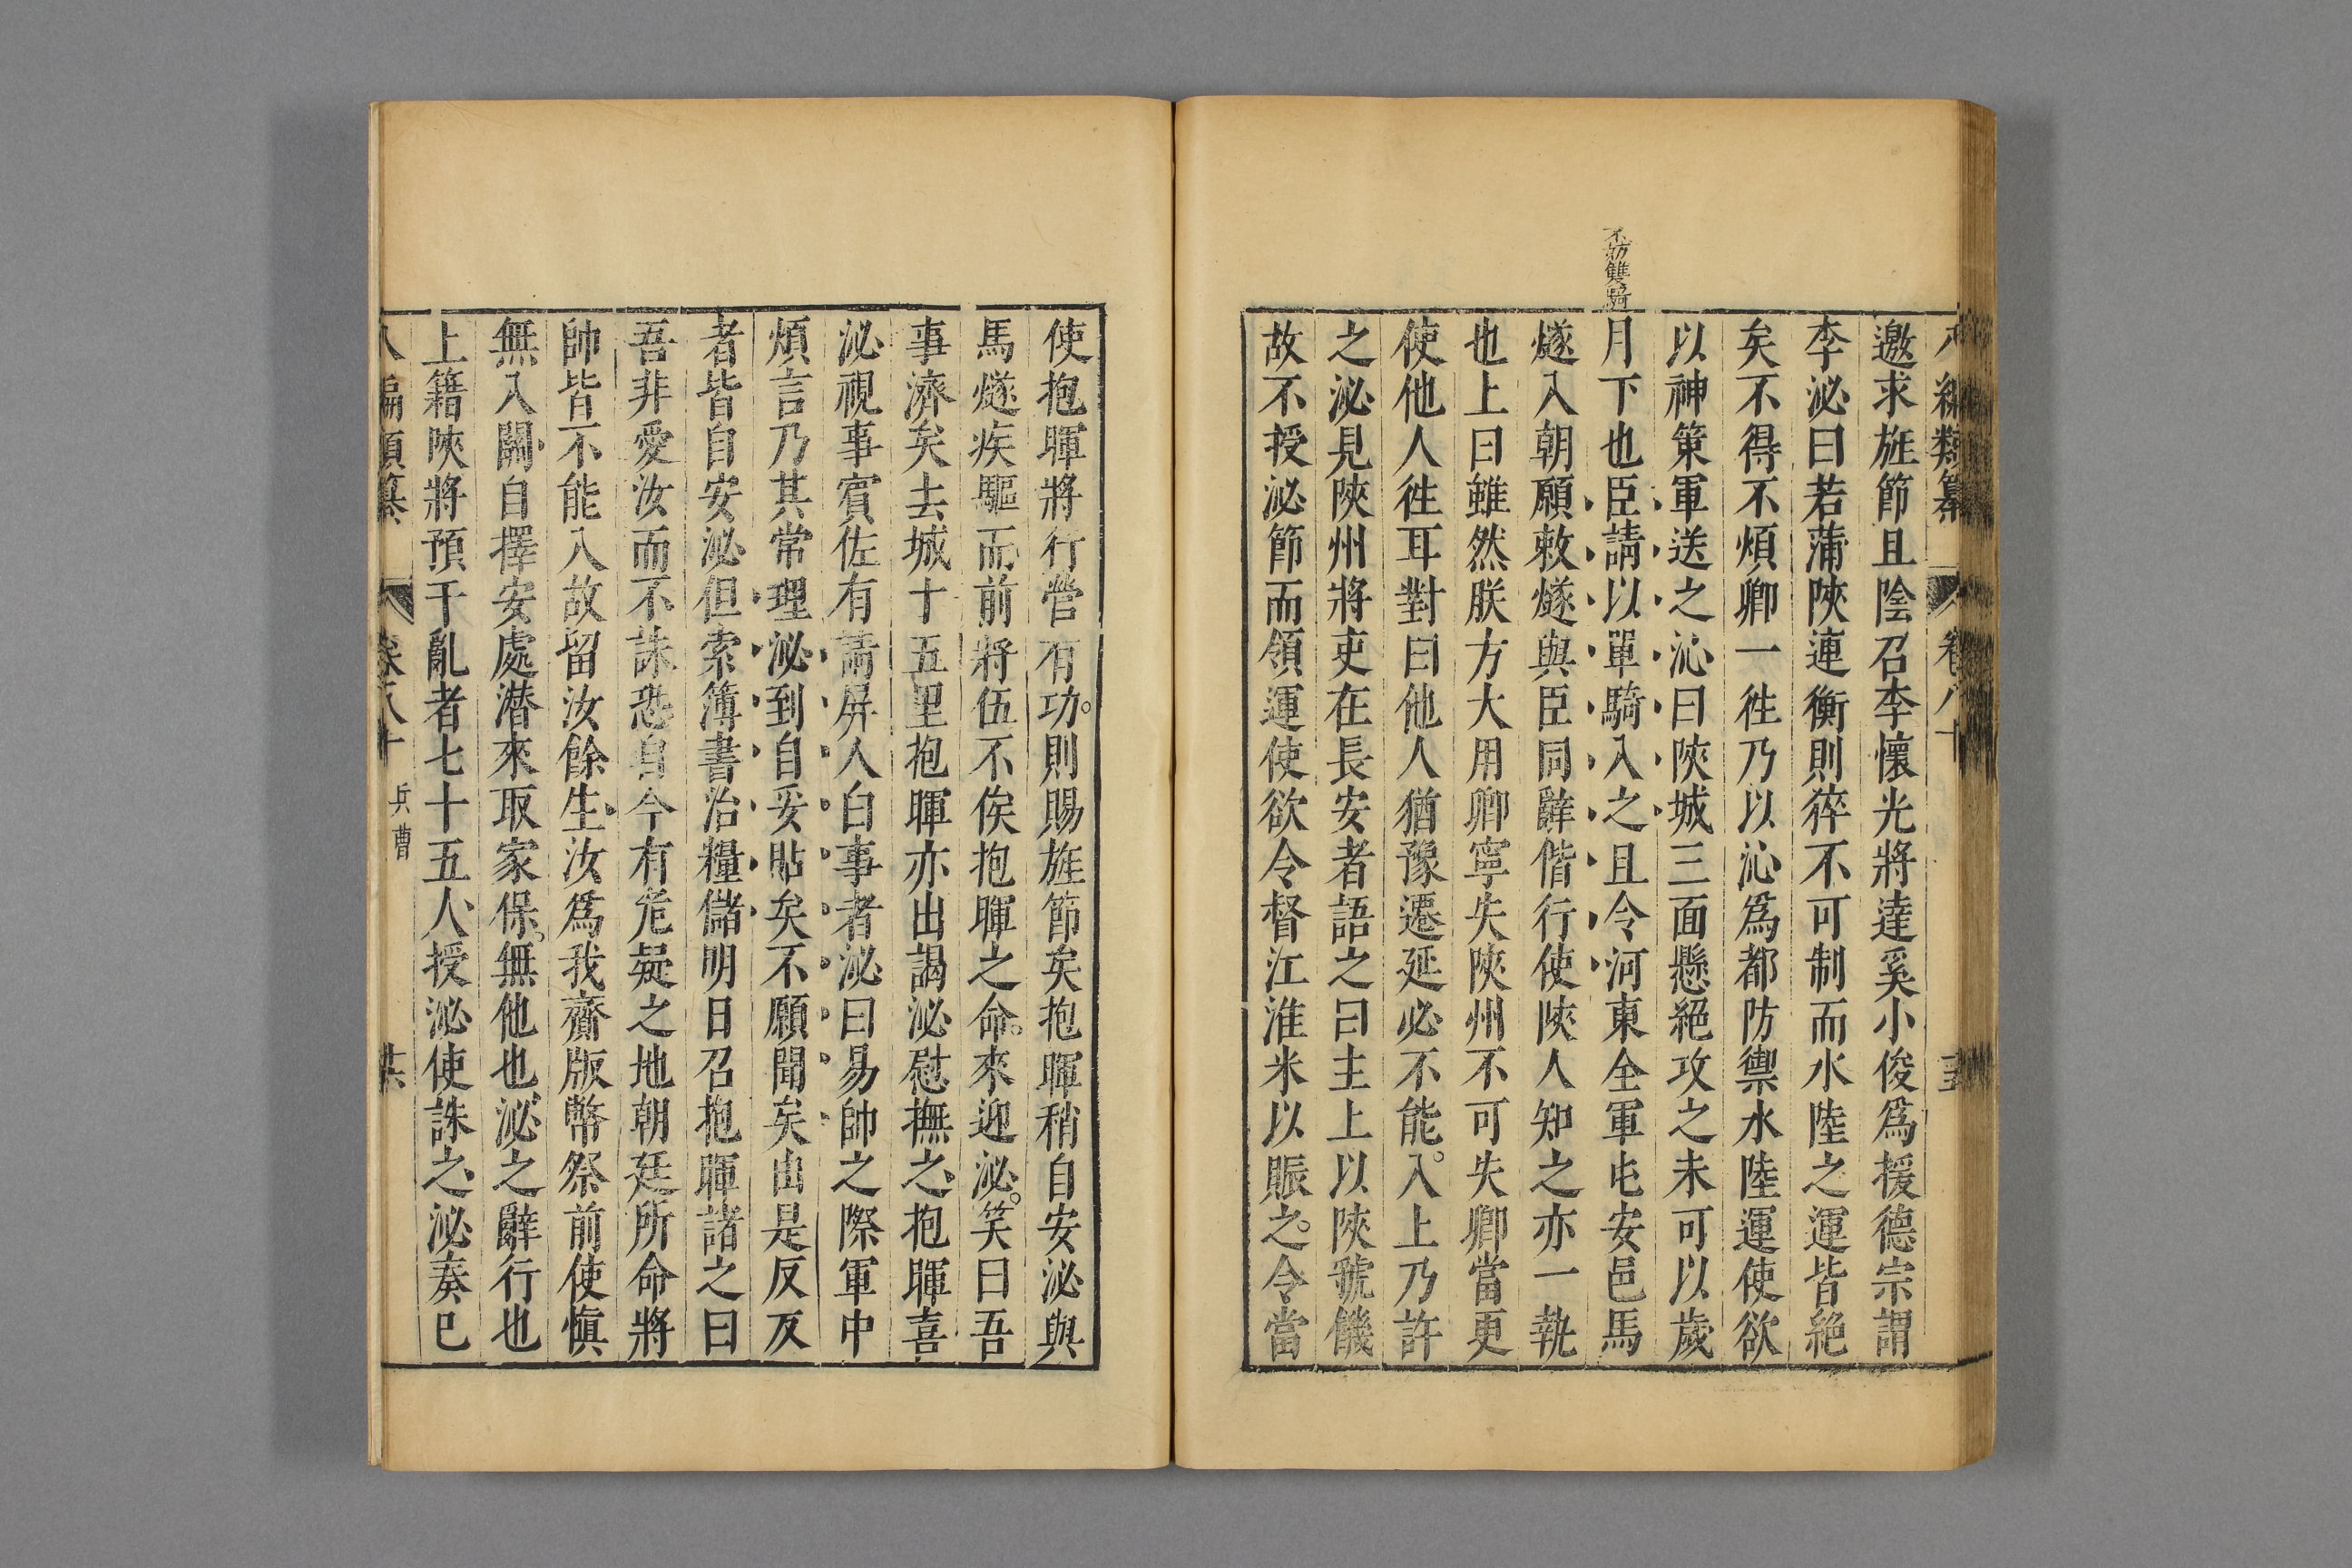 八編類纂 卷八十
邀求旌節且陰召李懷光將達奚小俊爲援德宗謂
李泌曰若蒲陝連衡則猝不可制而水陸之運皆絶
矣不得不煩卿一徃乃以沁爲都防禦水陸運使欲
以神策軍送之沁曰陝城三面懸絕攻之未可以歲
不妨雙騎
月下也臣請以單騎入之且令河東全軍屯安邑馬
燧入朝願敕燧與臣同辭偕行使陝人知之亦一執
也上曰雖然朕方大用卿寧失陝州不可失卿當更
使他人徃耳對曰他人猶豫遷延必不能入上乃許
之泌見陝州將吏在長安者語之曰主上以陝虢饑
故不授泌節而領運使欲令督江淮米以賑之令當
使抱暉將行營有功則賜旌節矣抱暉稍自安泌與
馬燧疾驅而前將伍不俟抱暉之命來迎泌笑曰吾
事濟矣去城十五里抱暉亦出謁泌慰撫之抱暉喜
泌視事賓佐有請屏人白事者泌曰易帥之際軍中
煩言乃其常理泌到自妥貼矣不願聞矣由是反仄
者皆自安泌但索簿書治糧儲明日召抱暉諸之曰
吾非愛汝而不誅恐自今有危疑之地朝廷所命將
帥皆不能入故留汝餘生汝爲我齎版幣祭前使慎
無入關自擇安處潛來取家保無他也泌之辭行也
上籍陝將預于亂者七十五人授泌使誅之泌奏已
八編類纂 卷八十 兵曹 廿六